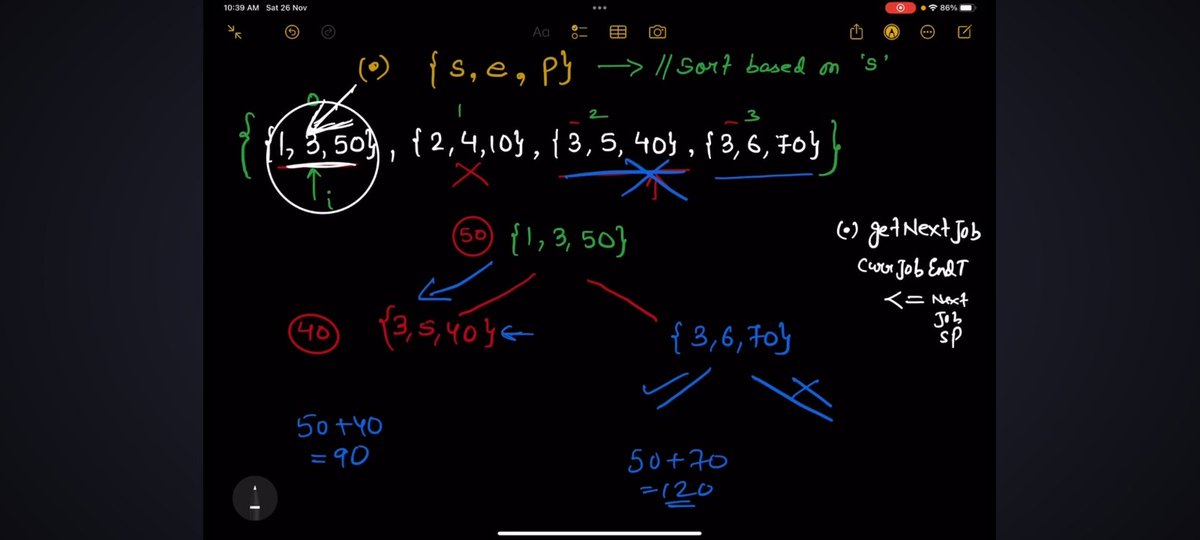 10:39 AM Sat 26 Nov
86%
Aa
(•) {s, e, p} → // Sort based on 's'
0 1 2 3
{ {1, 3, 50}, {2, 4, 10}, {3, 5, 40}, {3, 6, 70} }
i
50 {1, 3, 50}
(•) getNextJob
CurrJobEndT
<= Next
Job
SP
40 {3, 5, 40} ←
{3, 6, 70}
50 + 40
= 90
50 + 70
= 120